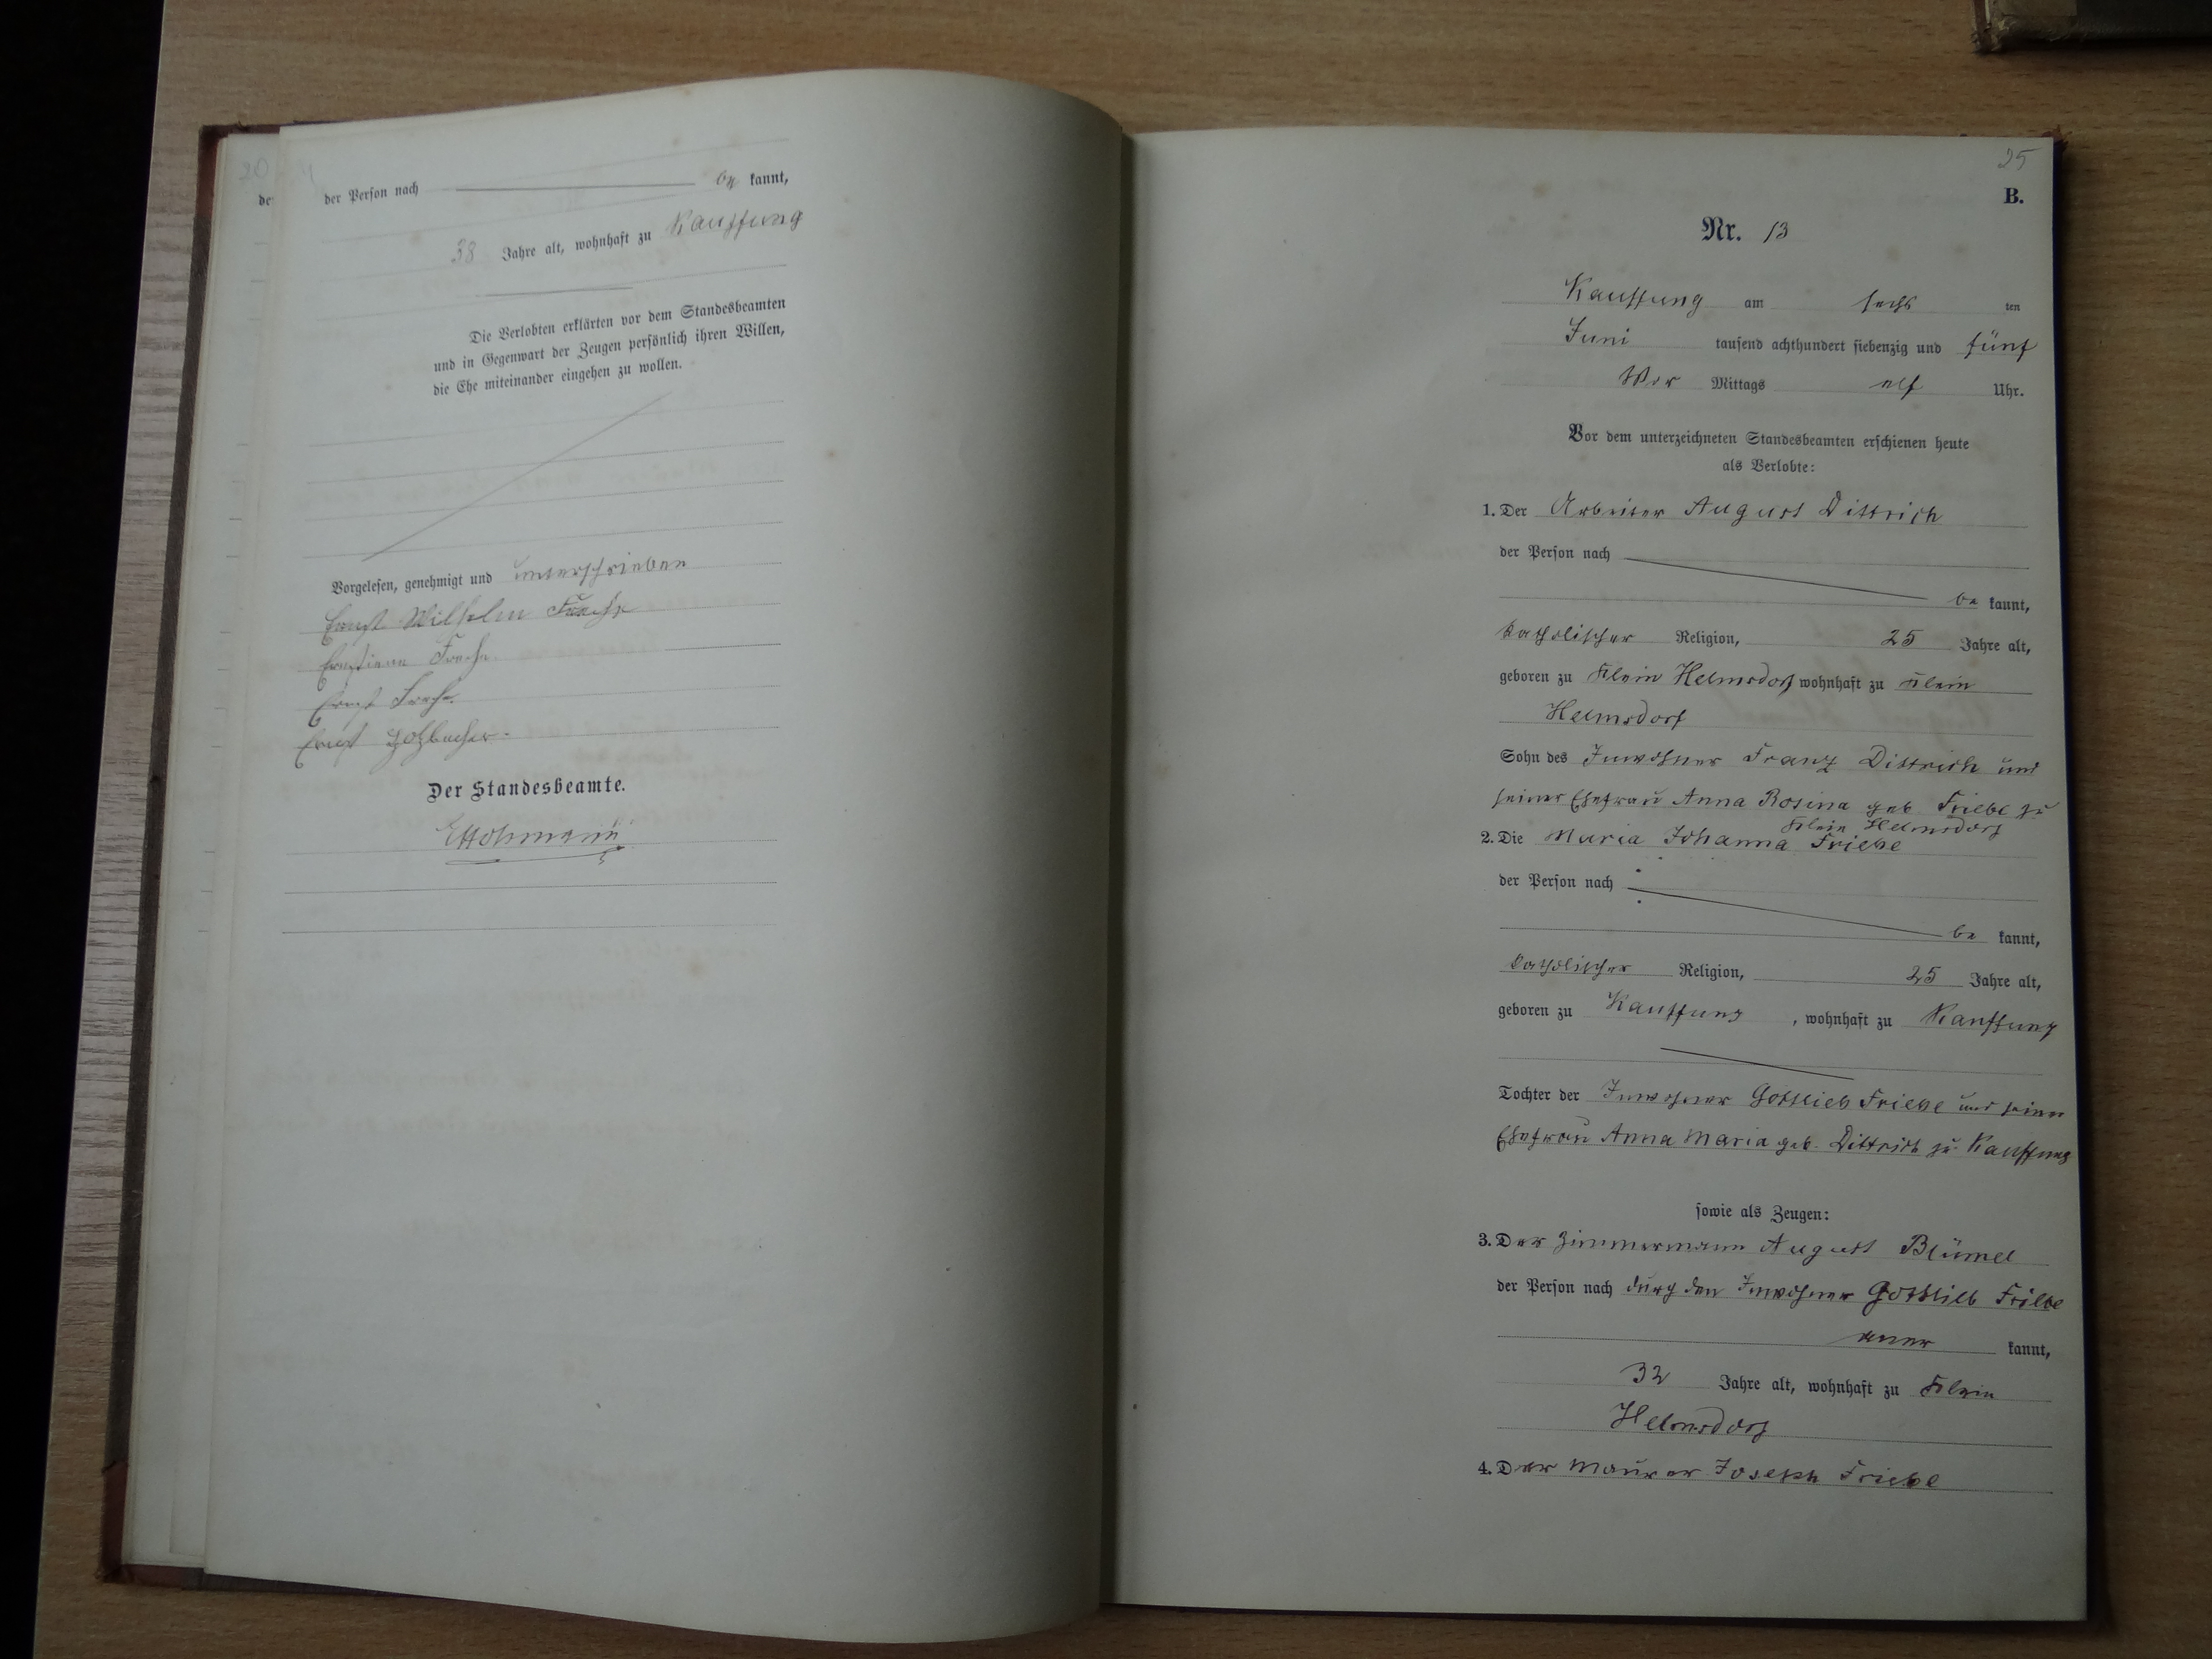 20
de
der Person nach be kannt,
38 Jahre alt, wohnhaft zu Kauffung
Die Verlobten erklärten vor dem Standesbeamten
und in Gegenwart der Zeugen persönlich ihren Willen,
die Ehe miteinander eingehen zu wollen.
Vorgelesen, genehmigt und unterschrieben
Ernst Wilhelm
Ernst
Ernst
Der Standesbeamte.
25
B.
Nr. 13
Kauffung am sechs ten
Juni tausend achthundert siebenzig und fünf
Vor Mittags elf Uhr.
Vor dem unterzeichneten Standesbeamten erschienen heute
als Verlobte:
1. Der Arbeiter August Dittrich
der Person nach
be kannt,
katholischer Religion, 25 Jahre alt,
geboren zu Klein Helmsdorf wohnhaft zu Klein
Helmsdorf
Sohn des Inwohner Franz Dittrich und
seiner Ehefrau Anna Rosina geb Friebe zu
Klein Helmsdorf
2. Die Maria Johanna Friebe
der Person nach
be kannt,
katholischer Religion, 25 Jahre alt,
geboren zu Kauffung, wohnhaft zu Kauffung
Tochter der Inwohner Gottlieb Friebe und seiner
Ehefrau Anna Maria geb. Dittrich zu Kauffung
sowie als Zeugen:
3. Der Zimmermann August Blümel
der Person nach durch den Inwohner Gottlieb Friebe
aner kannt,
32 Jahre alt, wohnhaft zu Klein
Helmsdorf
4. Der Maurer Joseph Friebe